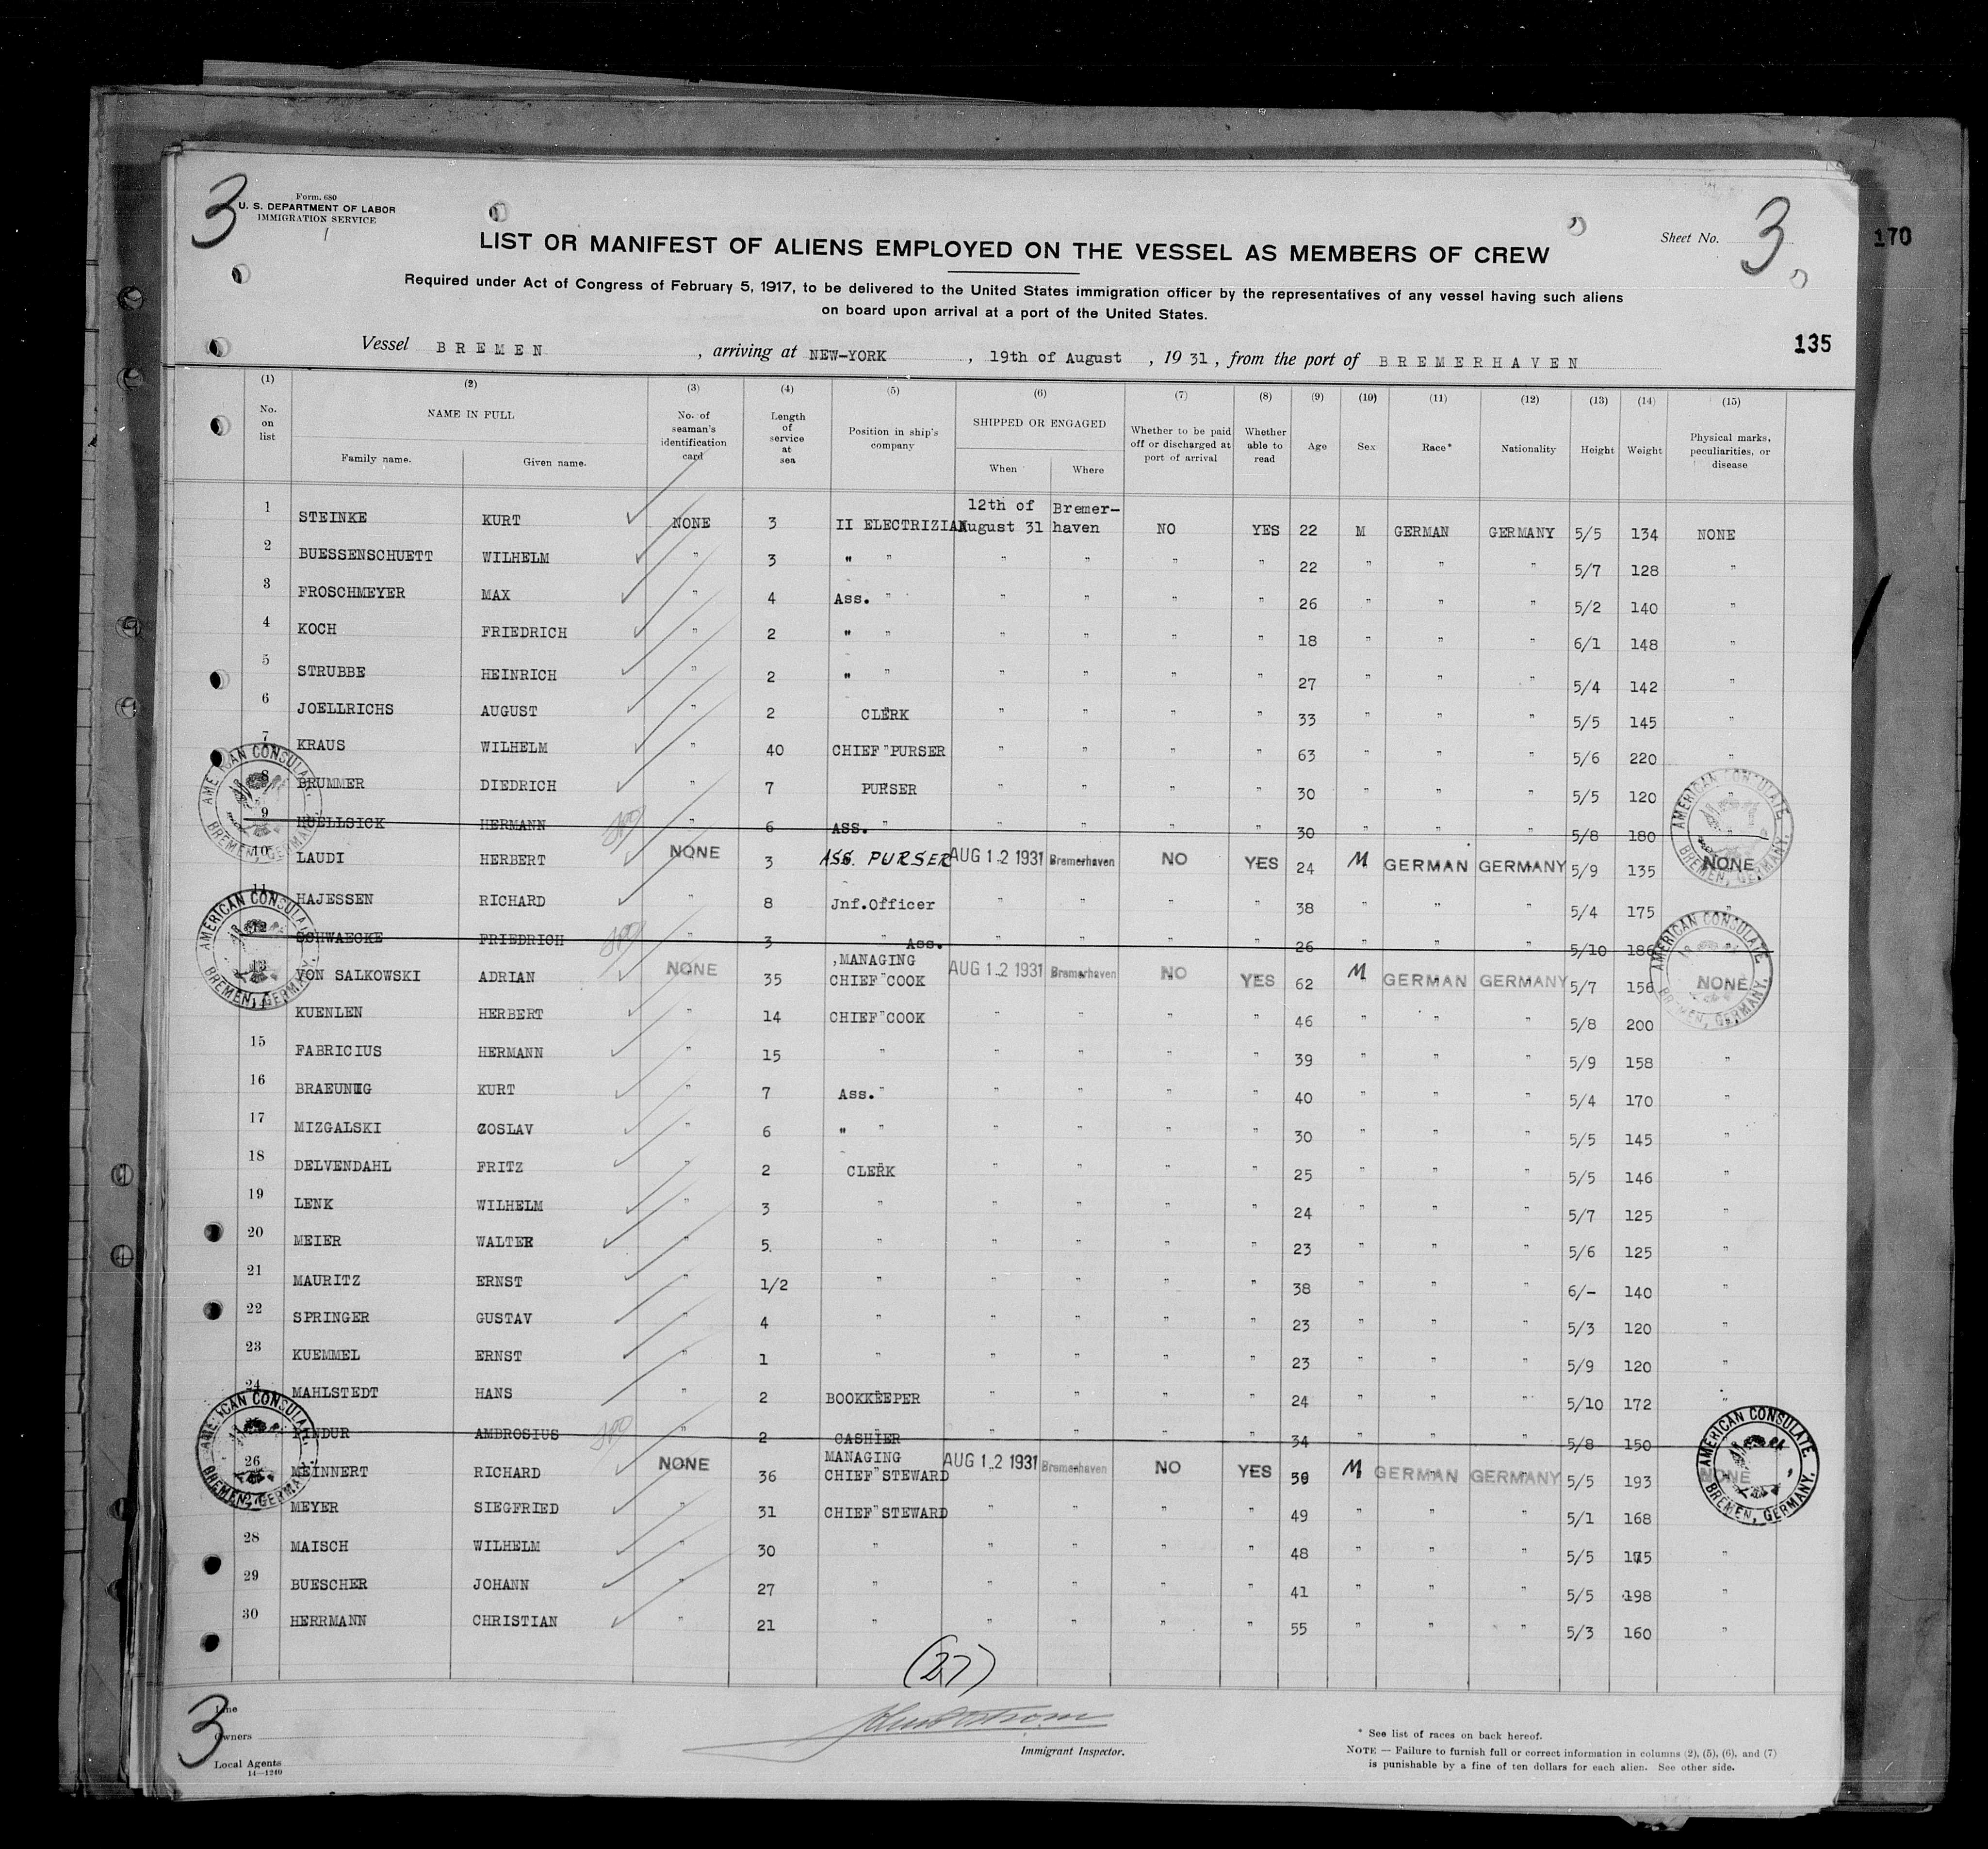 3
Form. 680
U. S. DEPARTMENT OF LABOR
IMMIGRATION SERVICE
LIST OR MANIFEST OF ALIENS EMPLOYED ON THE VESSEL AS MEMBERS OF CREW
Sheet No. 3
170
Required under Act of Congress of February 5, 1917, to be delivered to the United States immigration officer by the representatives of any vessel having such aliens
on board upon arrival at a port of the United States.
135
Vessel BREMEN, arriving at NEW-YORK, 19th of August, 1931, from the port of BREMERHAVEN
(1) (2) (3) (4) (5) (6) (7) (8) (9) (10) (11) (12) (13) (14) (15)
No. on list NAME IN FULL Family name. Given name. No. of seaman's identification card Length of service at sea Position in ship's company SHIPPED OR ENGAGED When Where Whether to be paid off or discharged at port of arrival Whether able to read Age Sex Race* Nationality Height Weight Physical marks, peculiarities, or disease
1 STEINKE KURT NONE 3 II ELECTRIZIAN 12th of August 31 Bremer-haven NO YES 22 M GERMAN GERMANY 5/5 134 NONE
2 BUESSENSCHUETT WILHELM " 3 " " " " " " 22 " " " 5/7 128 "
3 FROSCHMEYER MAX " 4 Ass. " " " " " 26 " " " 5/2 140 "
4 KOCH FRIEDRICH " 2 " " " " " " 18 " " " 6/1 148 "
5 STRUBBE HEINRICH " 2 " " " " " " 27 " " " 5/4 142 "
6 JOELLRICHS AUGUST " 2 CLERK " " " " 33 " " " 5/5 145 "
7 KRAUS WILHELM " 40 CHIEF PURSER " " " " 63 " " " 5/6 220 "
8 BRUMMER DIEDRICH " 7 PURSER " " " " 30 " " " 5/5 120 "
9 HUELLSICK HERMANN " 6 ASS. " " " " " 30 " " " 5/8 180 "
10 LAUDI HERBERT NONE 3 ASS. PURSER AUG 12 1931 Bremerhaven NO YES 24 M GERMAN GERMANY 5/9 135 NONE
11 HAJESSEN RICHARD " 8 Jnf.Officer " " " " 38 " " " 5/4 175 "
12 SCHWAECKE FRIEDRICH " 3 " Ass. " " " " 26 " " " 5/10 186
13 VON SALKOWSKI ADRIAN NONE 35 MANAGING CHIEF COOK AUG 12 1931 Bremerhaven NO YES 62 M GERMAN GERMANY 5/7 156 NONE
14 KUENLEN HERBERT " 14 CHIEF COOK " " " " 46 " " " 5/8 200 "
15 FABRICIUS HERMANN " 15 " " " " " 39 " " " 5/9 158 "
16 BRAEUNIG KURT " 7 Ass. " " " " " 40 " " " 5/4 170 "
17 MIZGALSKI COSLAV " 6 " " " " " " 30 " " " 5/5 145 "
18 DELVENDAHL FRITZ " 2 CLERK " " " " 25 " " " 5/5 146 "
19 LENK WILHELM " 3 " " " " " 24 " " " 5/7 125 "
20 MEIER WALTER " 5. " " " " " 23 " " " 5/6 125 "
21 MAURITZ ERNST " 1/2 " " " " " 38 " " " 6/- 140 "
22 SPRINGER GUSTAV " 4 " " " " " 23 " " " 5/3 120 "
23 KUEMMEL ERNST " 1 " " " " " 23 " " " 5/9 120 "
24 MAHLSTEDT HANS " 2 BOOKKEEPER " " " " 24 " " " 5/10 172 "
PINDUR AMBROSIUS " 2 CASHIER " " " " 34 " " " 5/8 150
26 MEINNERT RICHARD NONE 36 MANAGING CHIEF STEWARD AUG 12 1931 Bremerhaven NO YES M GERMAN GERMANY 5/5 193 NONE
27 MEYER SIEGFRIED " 31 CHIEF STEWARD " " " " 49 " " " 5/1 168
28 MAISCH WILHELM " 30 " " " " " 48 " " " 5/5 175 "
29 BUESCHER JOHANN " 27 " " " " " 41 " " " 5/5 198 "
30 HERRMANN CHRISTIAN " 21 " " " " " 55 " " " 5/3 160 "
AMERICAN CONSULATE, BREMEN, GERMANY.
AMERICAN CONSULATE, BREMEN, GERMANY.
AMERICAN CONSULATE, BREMEN, GERMANY.
AMERICAN CONSULATE, BREMEN, GERMANY.
AMERICAN CONSULATE, BREMEN, GERMANY.
AMERICAN CONSULATE, BREMEN, GERMANY.
(27)
3
Line
Owners
Local Agents
14—1240
Immigrant Inspector.
* See list of races on back hereof.
NOTE — Failure to furnish full or correct information in columns (2), (5), (6), and (7)
is punishable by a fine of ten dollars for each alien. See other side.